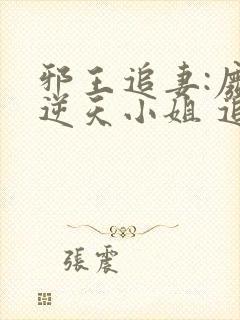 邪王追妻:
逆天小姐
張震